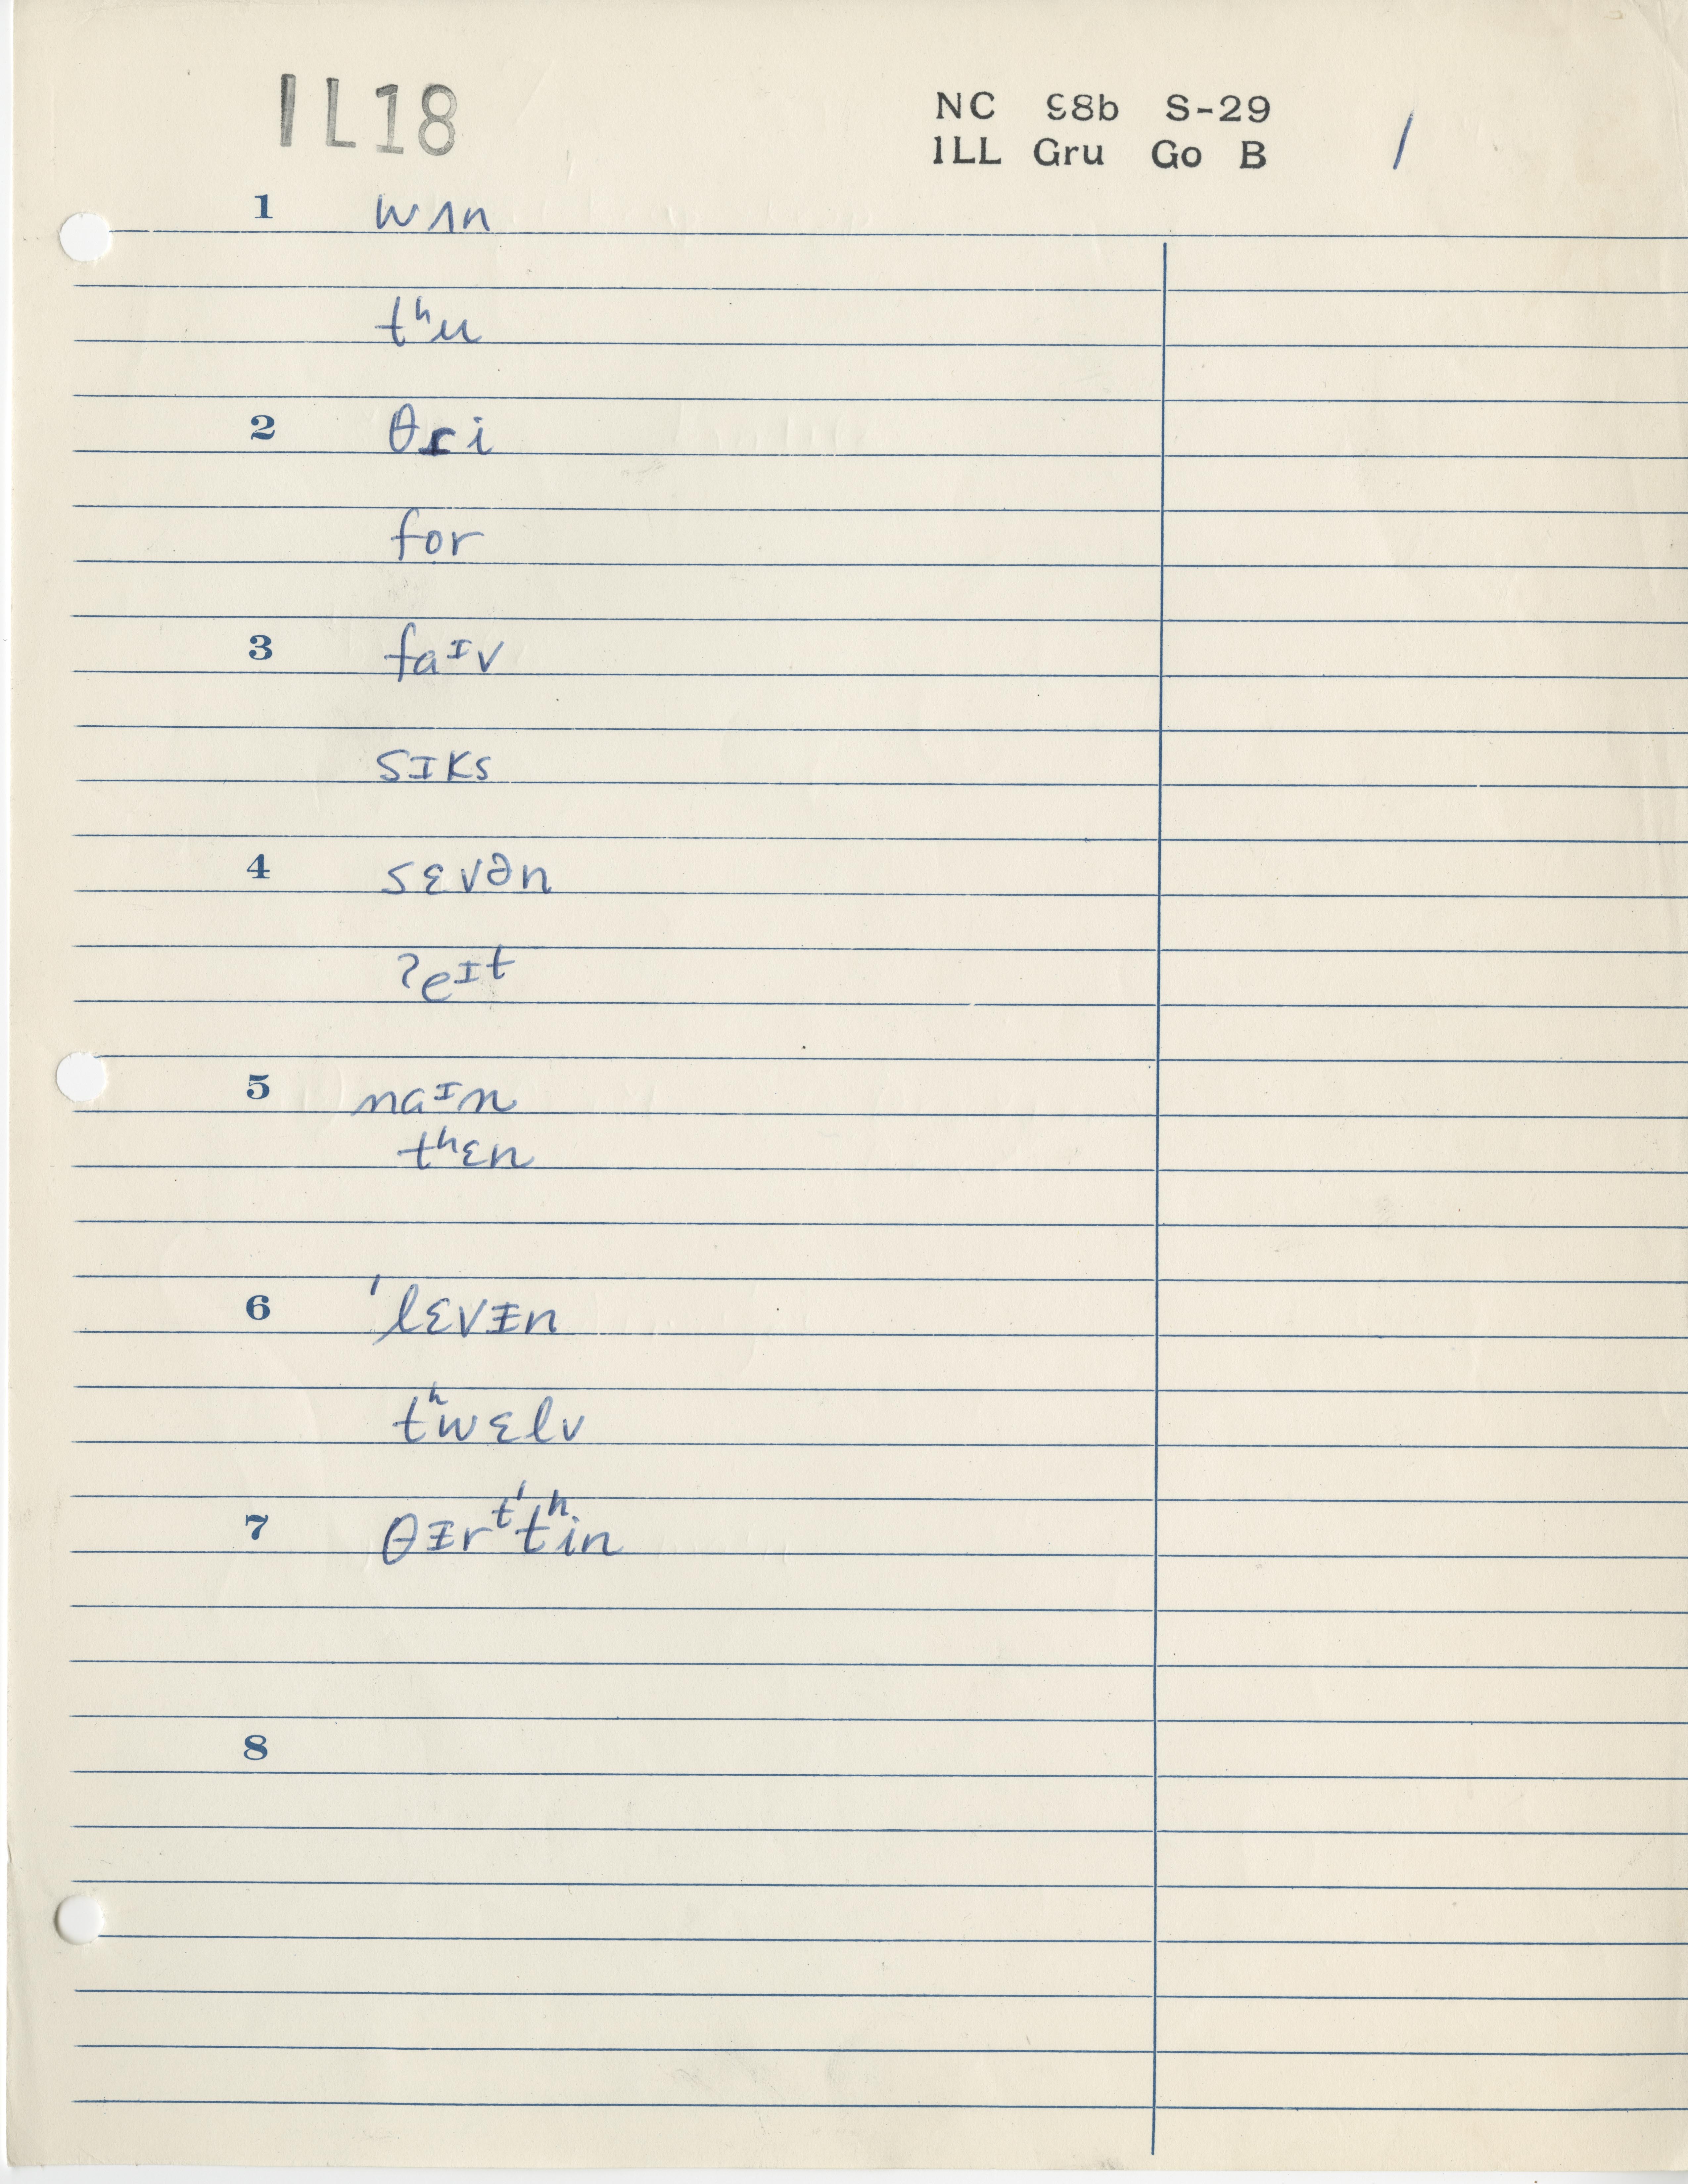 IL18
NC 98b S-29 /
ILL Gru Go B
1 wʌn
tʰu
2 θri
for
3 faᶦv
sɪks
4 sɛvən
ʔeᶦt
5 naᶦn
tʰɛn
6 ˈlɛvᵻn
tʰwɛlv
7 θᵻrᵗˈtʰin
8